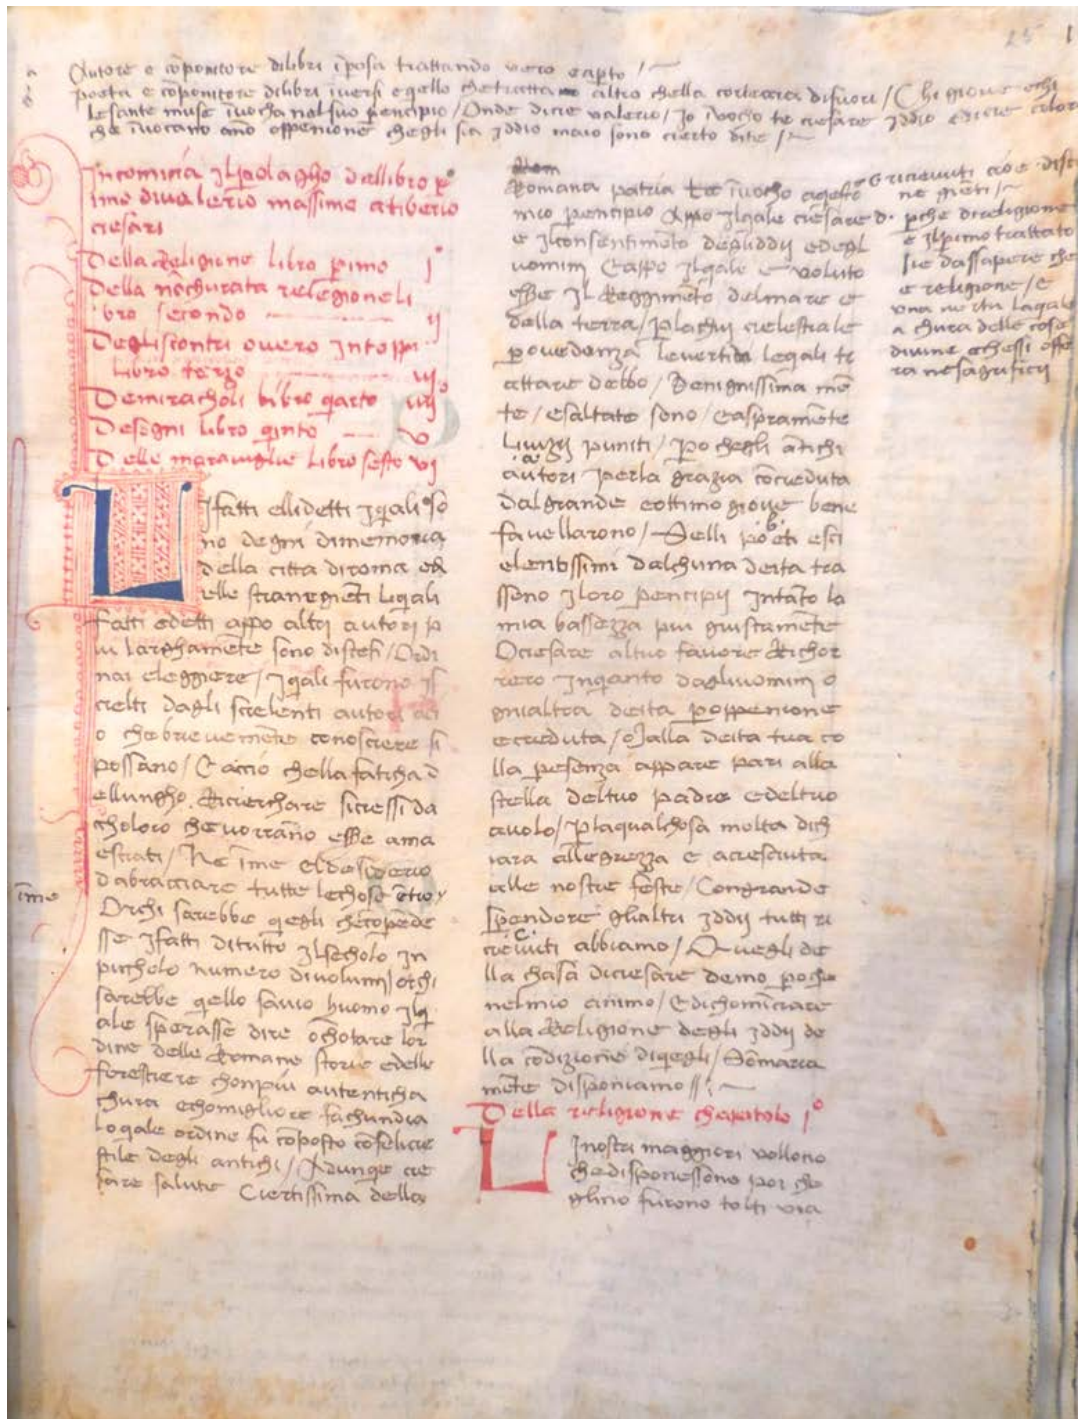 25 1
a Autore e cõponitore dilibri ĩ prosa trattando vero e aperto /
b poeta e cõponitore dilibri ĩ versi e qello che tratta altro chella corteccia di fuori / Chi giove e chi
le sante muse ĩvocha nel suo pencipio / Onde dicie valerio / Jo ĩvocho te ciesare Jddio e dicie coloro
che ĩvocano ano oppenione chegli sia Jddio ma io sono cierto dite /
Incomicia Jl plagho dellibro pº
imo di valerio massimo a tiberio
ciesari
Della Religione libro pimo Jº
Della nõchurata relegione li
bro secondo ij
Degliscontri overo Jntoppi
libro terzo iij
Demiracholi libro qarto iiij
Desegni libro qinto v
Delle maraviglie libro sesto vj
I fatti ellidetti Jqali so
no degni dimemoria
della citta diroma ed
elle stranegiẽti liqali
fatti edetti appo altri autori p
iu larghamẽte sono distesi / Ordi
nai eleggiere / Jqali furono Js
cielti dagli scielenti autori aci
o che brievemẽte conosciere si
possano / E accio chella faticha d
ellungho Ricierchare sicressi da
choloro che vorrãno esse ama
estrati / Ne ĩme el desiderio
dabracciare tutte lechose ẽtro
ĩme
Orchi sarebbe qegli che cõpẽde
sse Jfatti ditutto Jl secholo in
picholo numero di volumi / o chi
sarebbe qello savio huomo Jlq
ale sperasse dire o chotare lor
dine delle Romane storie edelle
forestiere chonpiu autenticha
chura echomigliore fachundia
loqale ordine fu cõposto cõfelicie
stile degli antichi / Adunqe cie
sare salute Ciertissima della
Romana patria te ĩvocho aqesto
mio pencipio Appo Jlqale ciesare
e Jlconsentimẽto degliddij edegl
uomini E appo Jlqale e voluto
esse Jl Reggimẽto delmare e
della terra / Placui cielestiale
povedenza levertu leqali tr
attare debbo / Benignissima mẽ
te / esaltate sono / E aspramẽte
livizij puniti / Po chegli ãtichi
autori perla grazia cõcieduta
dalgrande eottimo giove bene
favellarono / Selli poeti esci
elentissimi dalchuna deita tra
ssono Jloro pencipij Jntãto la
mia bassezza piu giustamẽte
O ciesare altuo favore Richor
rero Jnqanto dagliuomini o
gnialtra deita poppenione
e creduta / oJ alla deita tua co
lla pesenza appare pari alla
stella deltuo padre edeltuo
avolo / Plaqualchosa molta dich
iara allegrezza e acresciuta
alle nostre feste / Congrande
spendore glialtri Jddij tutti ri
cievuti abbiamo / Quegli de
lla chasa diciesare demo poche
nelmio animo / E dichominciare
alla Religione degli Jddij de
lla cõdizione diqegli / Sõmaria
mẽte disponiamo //
Della religione chapitolo Jº
L Jnostri maggiori vollono
che disponessono poi che
glino furono tolti via
c ricievuti cioe disti
ne giẽti /
d. pche direligione
e Jl pimo trattato
sie dassapere che
e religione / E
una vertu laqale
a chura delle cose
divine e chessi offe
ra nesagrificij